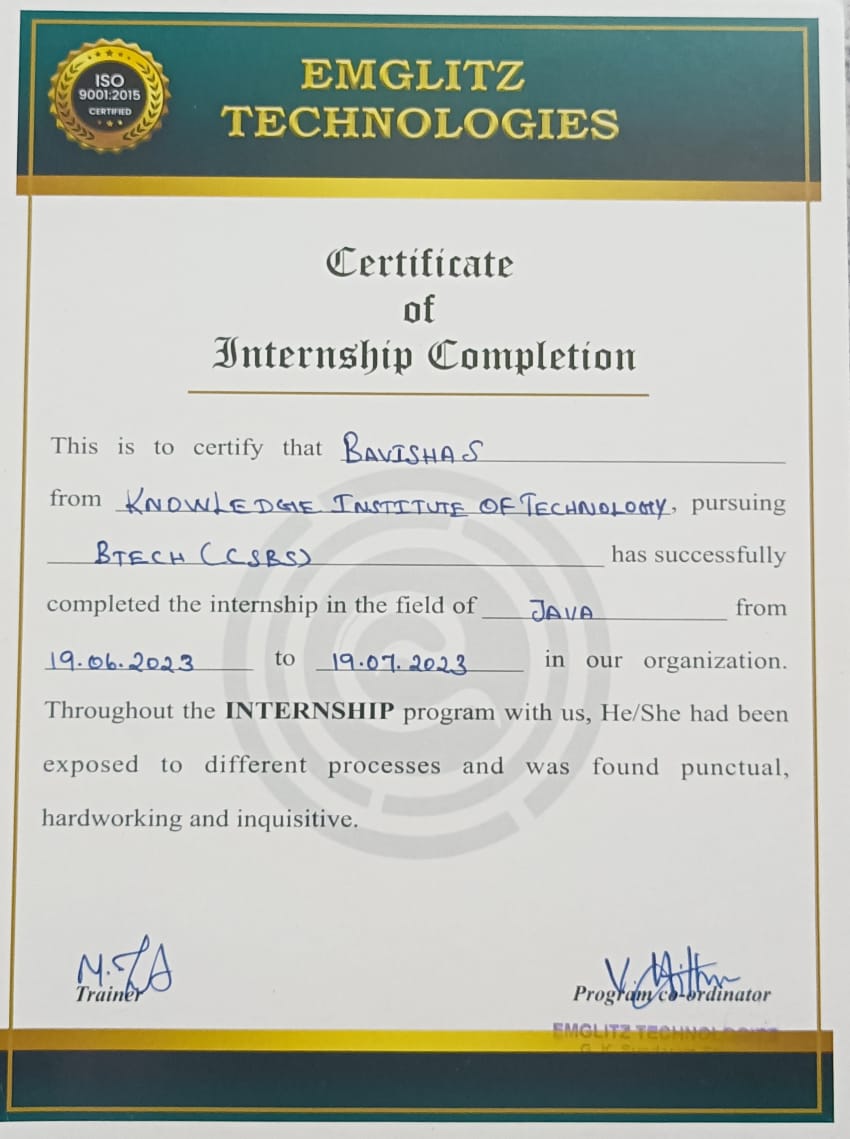 ISO
9001:2015
CERTIFIED
EMGLITZ
TECHNOLOGIES
Certificate
of
Internship Completion
This is to certify that BAVISHA S
from KNOWLEDGE INSTITUTE OF TECHNOLOGY, pursuing
BTECH (CSBS) has successfully
completed the internship in the field of JAVA from
19.06.2023 to 19.07.2023 in our organization.
Throughout the INTERNSHIP program with us, He/She had been
exposed to different processes and was found punctual,
hardworking and inquisitive.
Trainer
Program co-ordinator
EMGLITZ TECHNOLOGIES